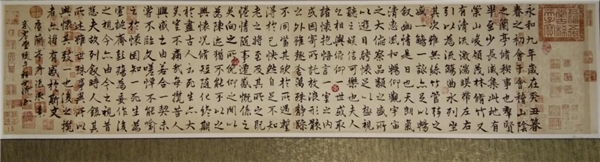 永和九年歲在癸丑暮
春之初會于會稽山陰
之蘭亭脩稧事也群賢
畢至少長咸集此地有
崇山峻領茂林脩竹又
有清流激湍暎帶左右
引以為流觴曲水列坐
其次雖無絲竹管弦之
盛一觴一詠亦足以暢
敘幽情是日也天朗氣
清惠風和暢仰觀宇宙
之大俯察品類之盛所
以遊目騁懷足以極視
聽之娛信可樂也夫人
之相與俯仰一世或取
諸懷抱悟言一室之內
或因寄所託放浪形骸
之外雖趣舍萬殊靜躁
不同當其欣於所遇暫
得於己快然自足不知
老之將至及其所之既
惓情隨事遷感慨係之
矣向之所欣俛仰之間以
為陳迹猶不能不以之
興懷況脩短隨化終期
於盡古人云死生亦大
矣豈不痛哉每攬昔人
興感之由若合一契未
嘗不臨文嗟悼不能喻
之於懷固知一死生為
虛誕齊彭殤為妄作後
之視今亦由今之視昔
悲夫故列敘時人錄其
所述雖世殊事異所以
興懷其致一也後之攬
者亦將有感於斯文